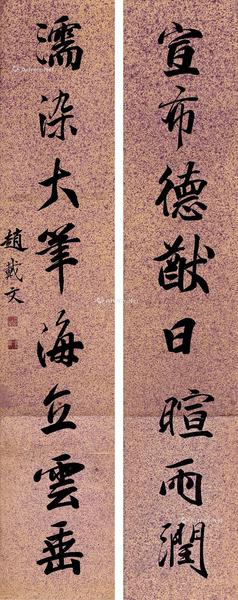 宣布德猷日暄雨潤
濡染大筆海立雲垂
趙戴文